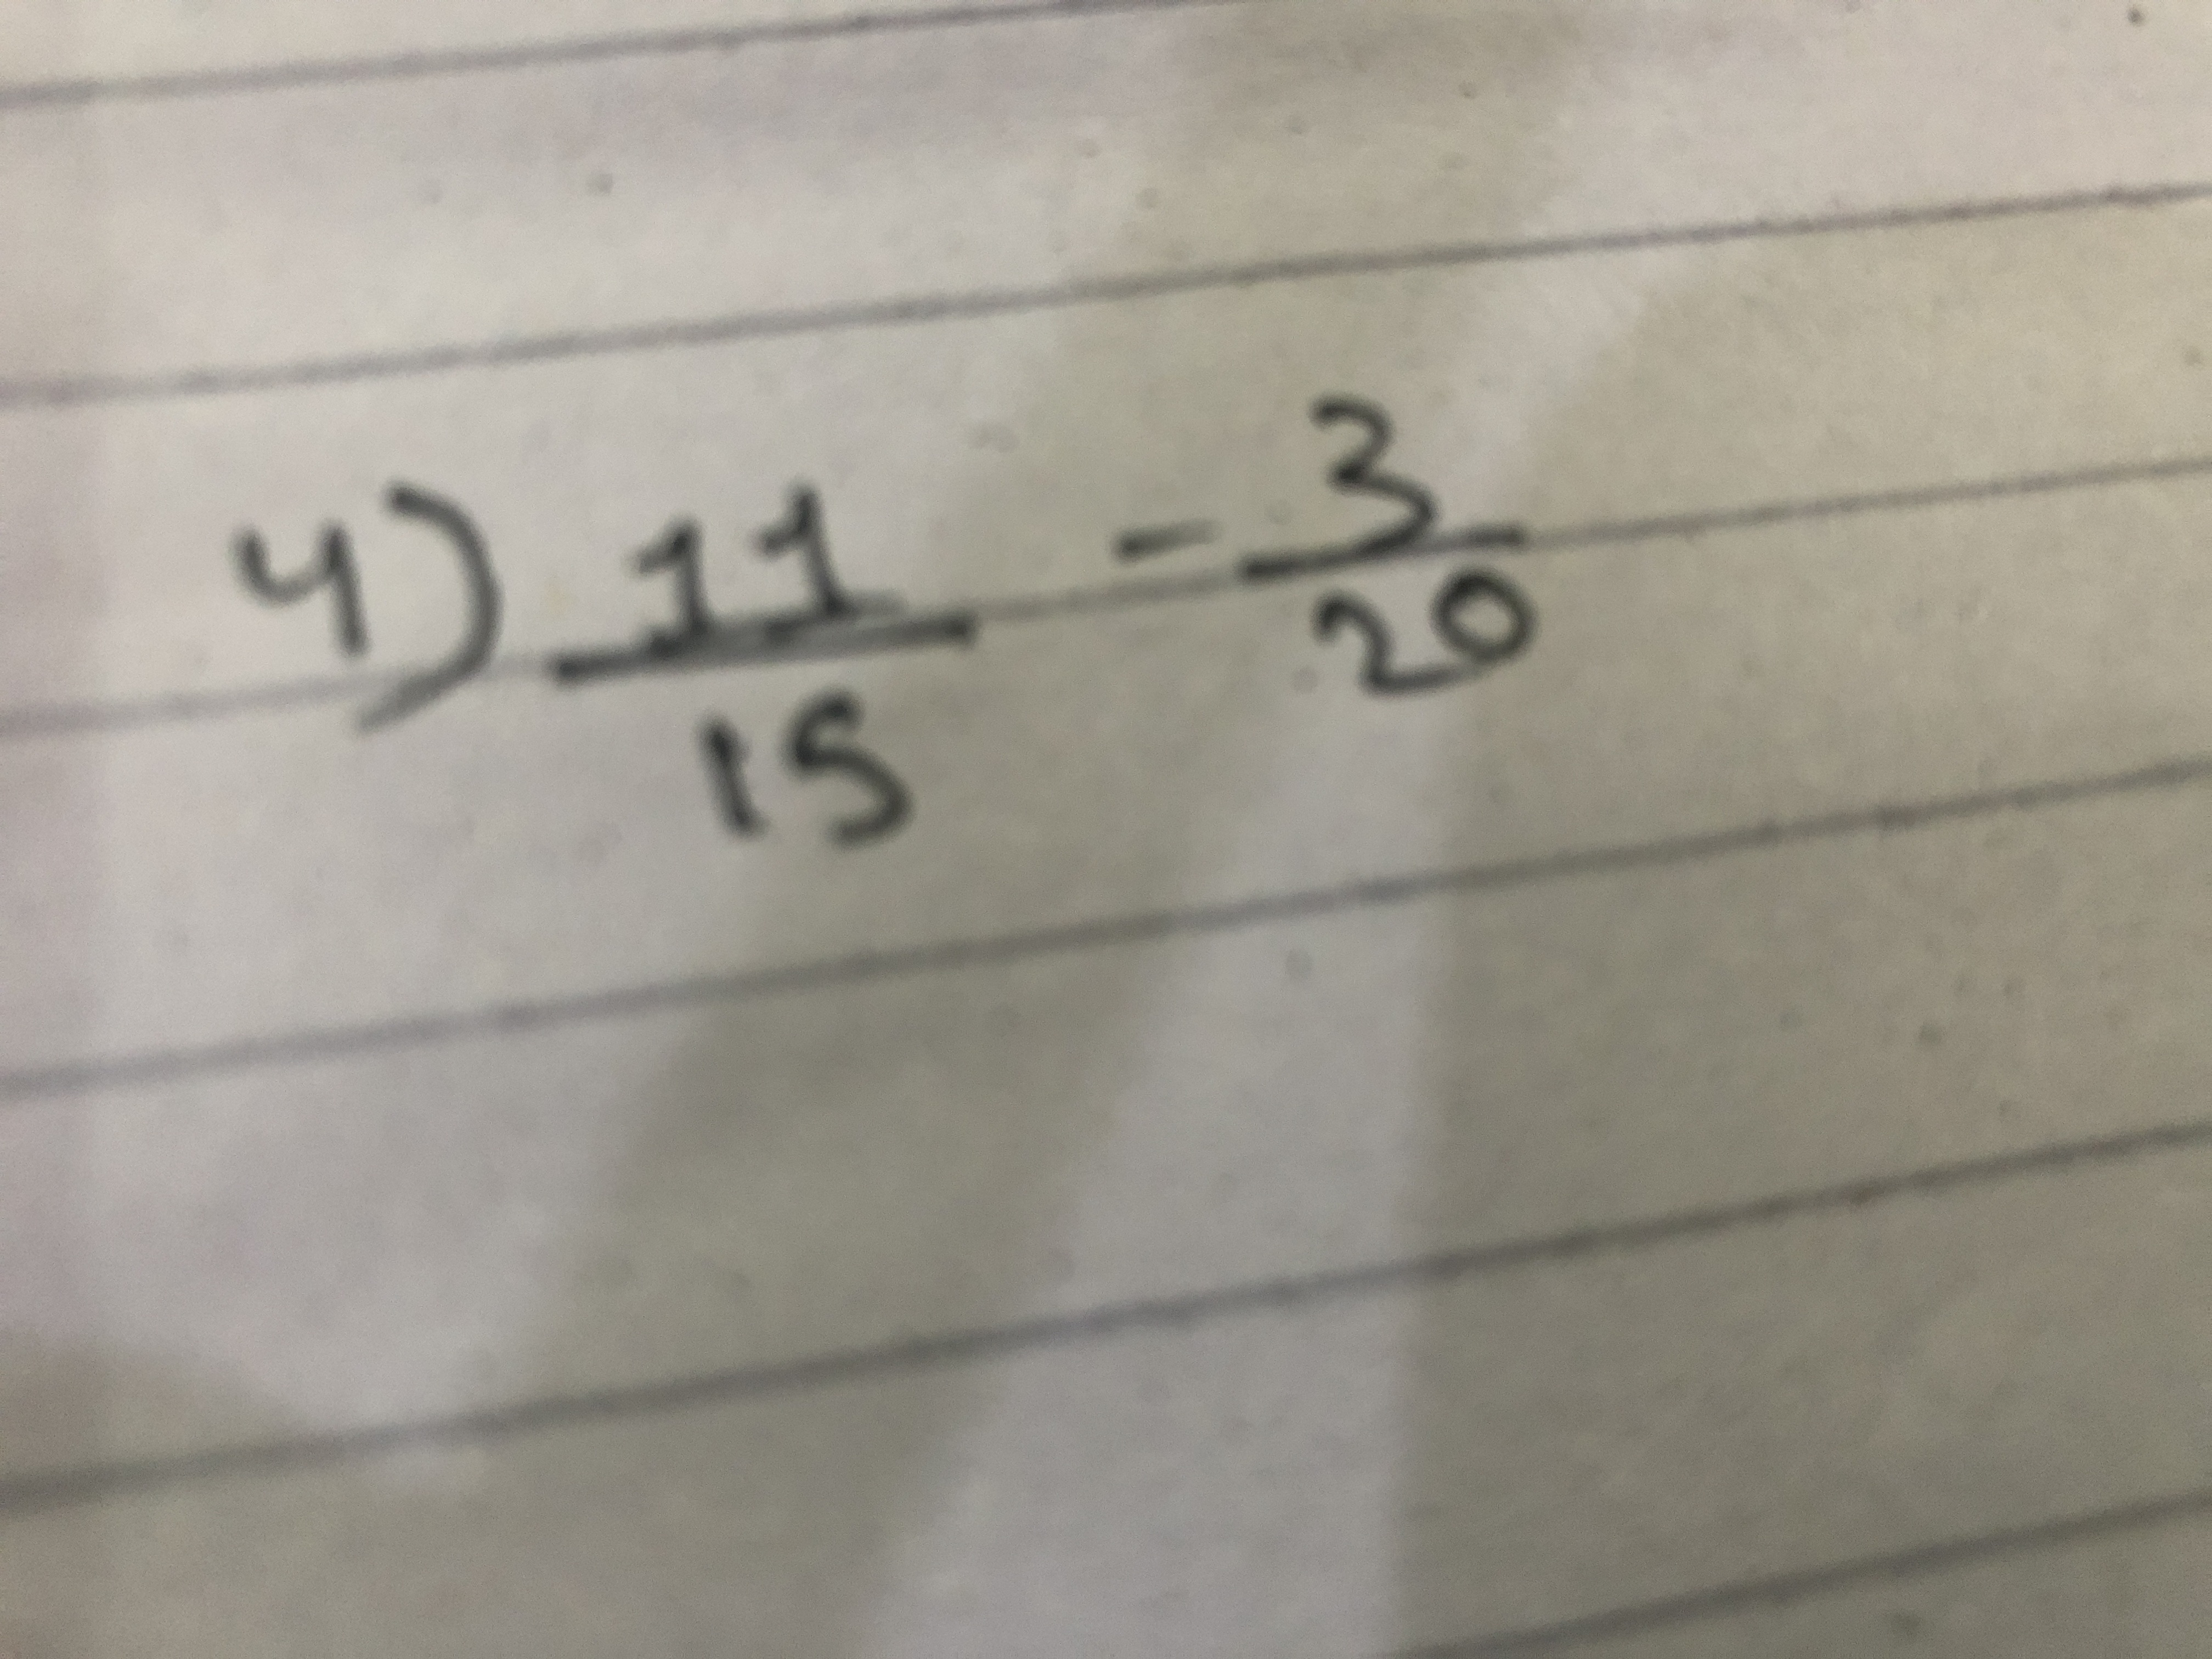 4) 11/15 - 3/20